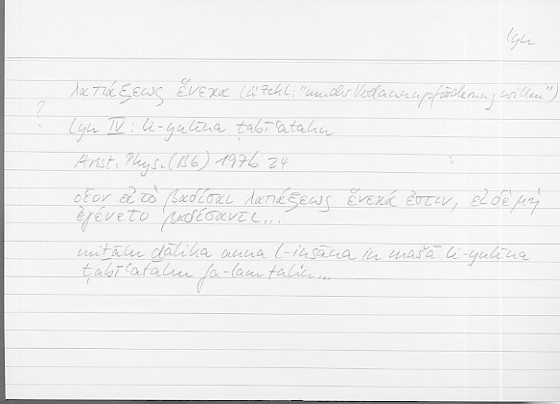 lyn
λαπάξεως ἕνεκα (üZekl: "um der Verdauungsförderung willen")
?
lyn IV: li-yulīna ṭabīʿatahu
Arist. Phys. (B6) 197b 24
οἷον εἰ τὸ βαδίσαι λαπάξεως ἕνεκά ἐστιν, εἰ δὲ μὴ
ἐγένετο βαδίσαντι...
miṯālu ḏālika anna l-insāna in mašā li-yulīna
ṭabīʿatahu fa-lam talin...